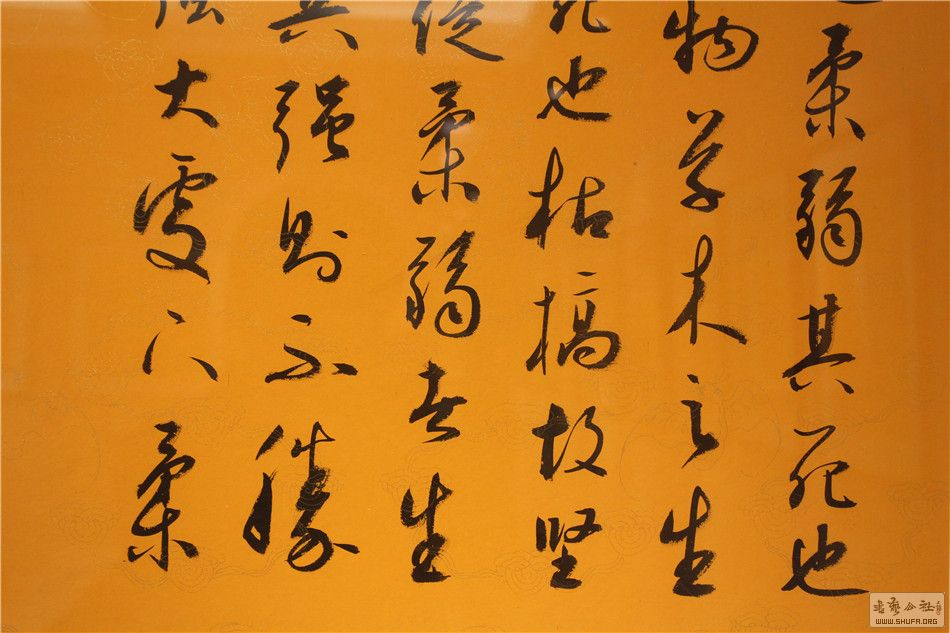 柔弱其死也
物草木之生
死也枯槁故坚
徒柔弱者生
兵强则不胜
强大处下柔
書艺公社
WWW.SHUFA.ORG